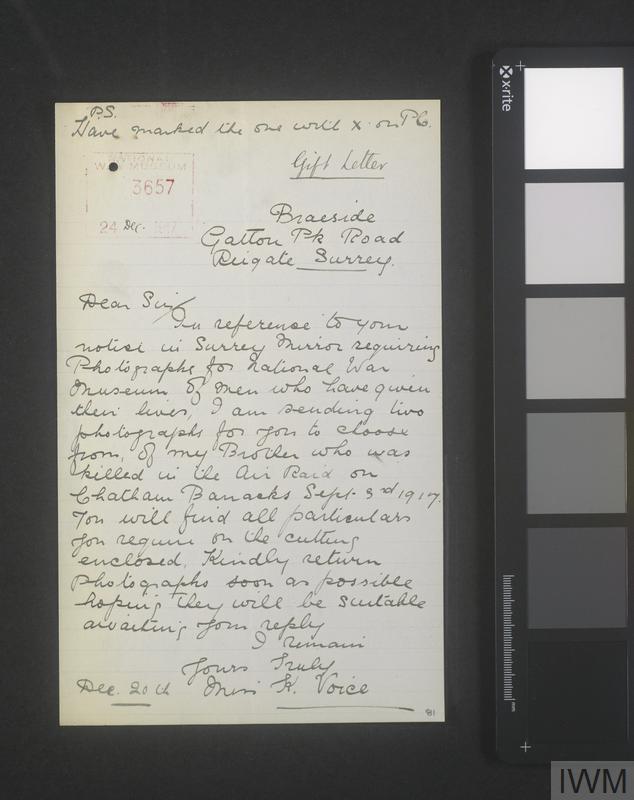 P.S.
Have marked the one with x on P.C.
Gift Letter
NATIONAL
WAR MUSEUM
3657
24 Dec. 1917
Braeside
Gatton Pk Road
Reigate Surrey.
Dear Sir/
In reference to your
notice in Surrey Mirror requiring
Photographs for National War
Museum of men who have given
their lives, I am sending two
photographs for you to choose
from, of my Brother who was
killed in the Air Raid on
Chatham Barracks Sept. 3rd 1917.
You will find all particulars
you require on the cutting
enclosed, Kindly return
photographs soon as possible
hoping they will be suitable
awaiting your reply
I remain
Yours Truly
Dec. 20th Miss K. Voice
81
x-rite
mm
IWM